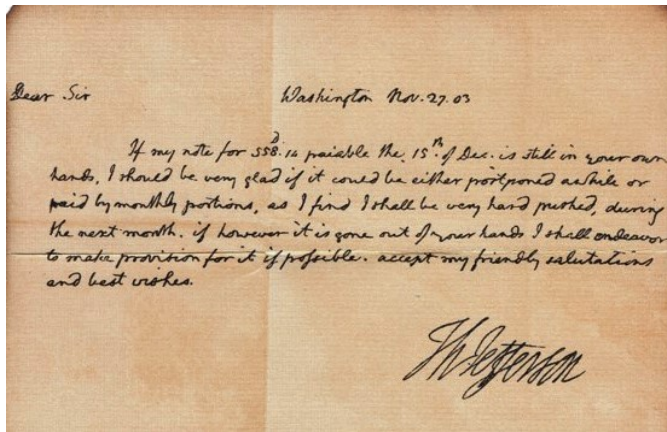 Dear Sir Washington Nov. 27. 03
If my note for 558.D14 paiable the 15th of Dec. is still in your own
hands, I should be very glad if it could be either postponed awhile or
paid by monthly portions, as I find I shall be very hard pushed, during
the next month. if however it is gone out of your hands I shall endeavor
to make provision for it if possible. accept my friendly salutations
and best wishes.
Th Jefferson